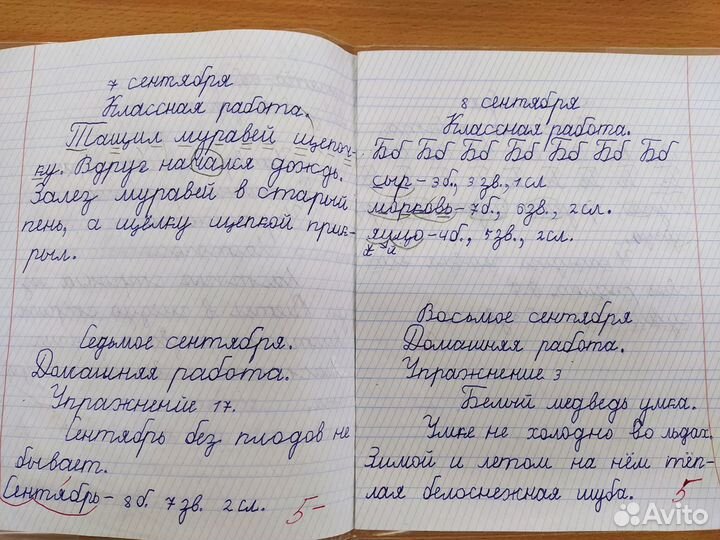 7 сентября
Классная работа.
Тащил муравей щепоч-
ку. Вдруг начался дождь.
Залез муравей в старый
пень, а щёлку щепкой прик-
рыл.
Седьмое сентября.
Домашняя работа.
Упражнение 17.
Сентябрь без плодов не
бывает.
Сентябрь – 8 б. 7 зв. 2 сл.
5-
8 сентября
Классная работа.
Бб Бб Бб Бб Бб Бб Бб
сыр – 3 б., 3 зв., 1 сл
морковь – 7 б., 6 зв., 2 сл.
яйцо – 4 б., 5 зв., 2 сл.
Восьмое сентября
Домашняя работа.
Упражнение 3
Белый медведь умка.
Умке не холодно во льдах.
Зимой и летом на нём тёп-
лая белоснежная шуба.
5
Avito